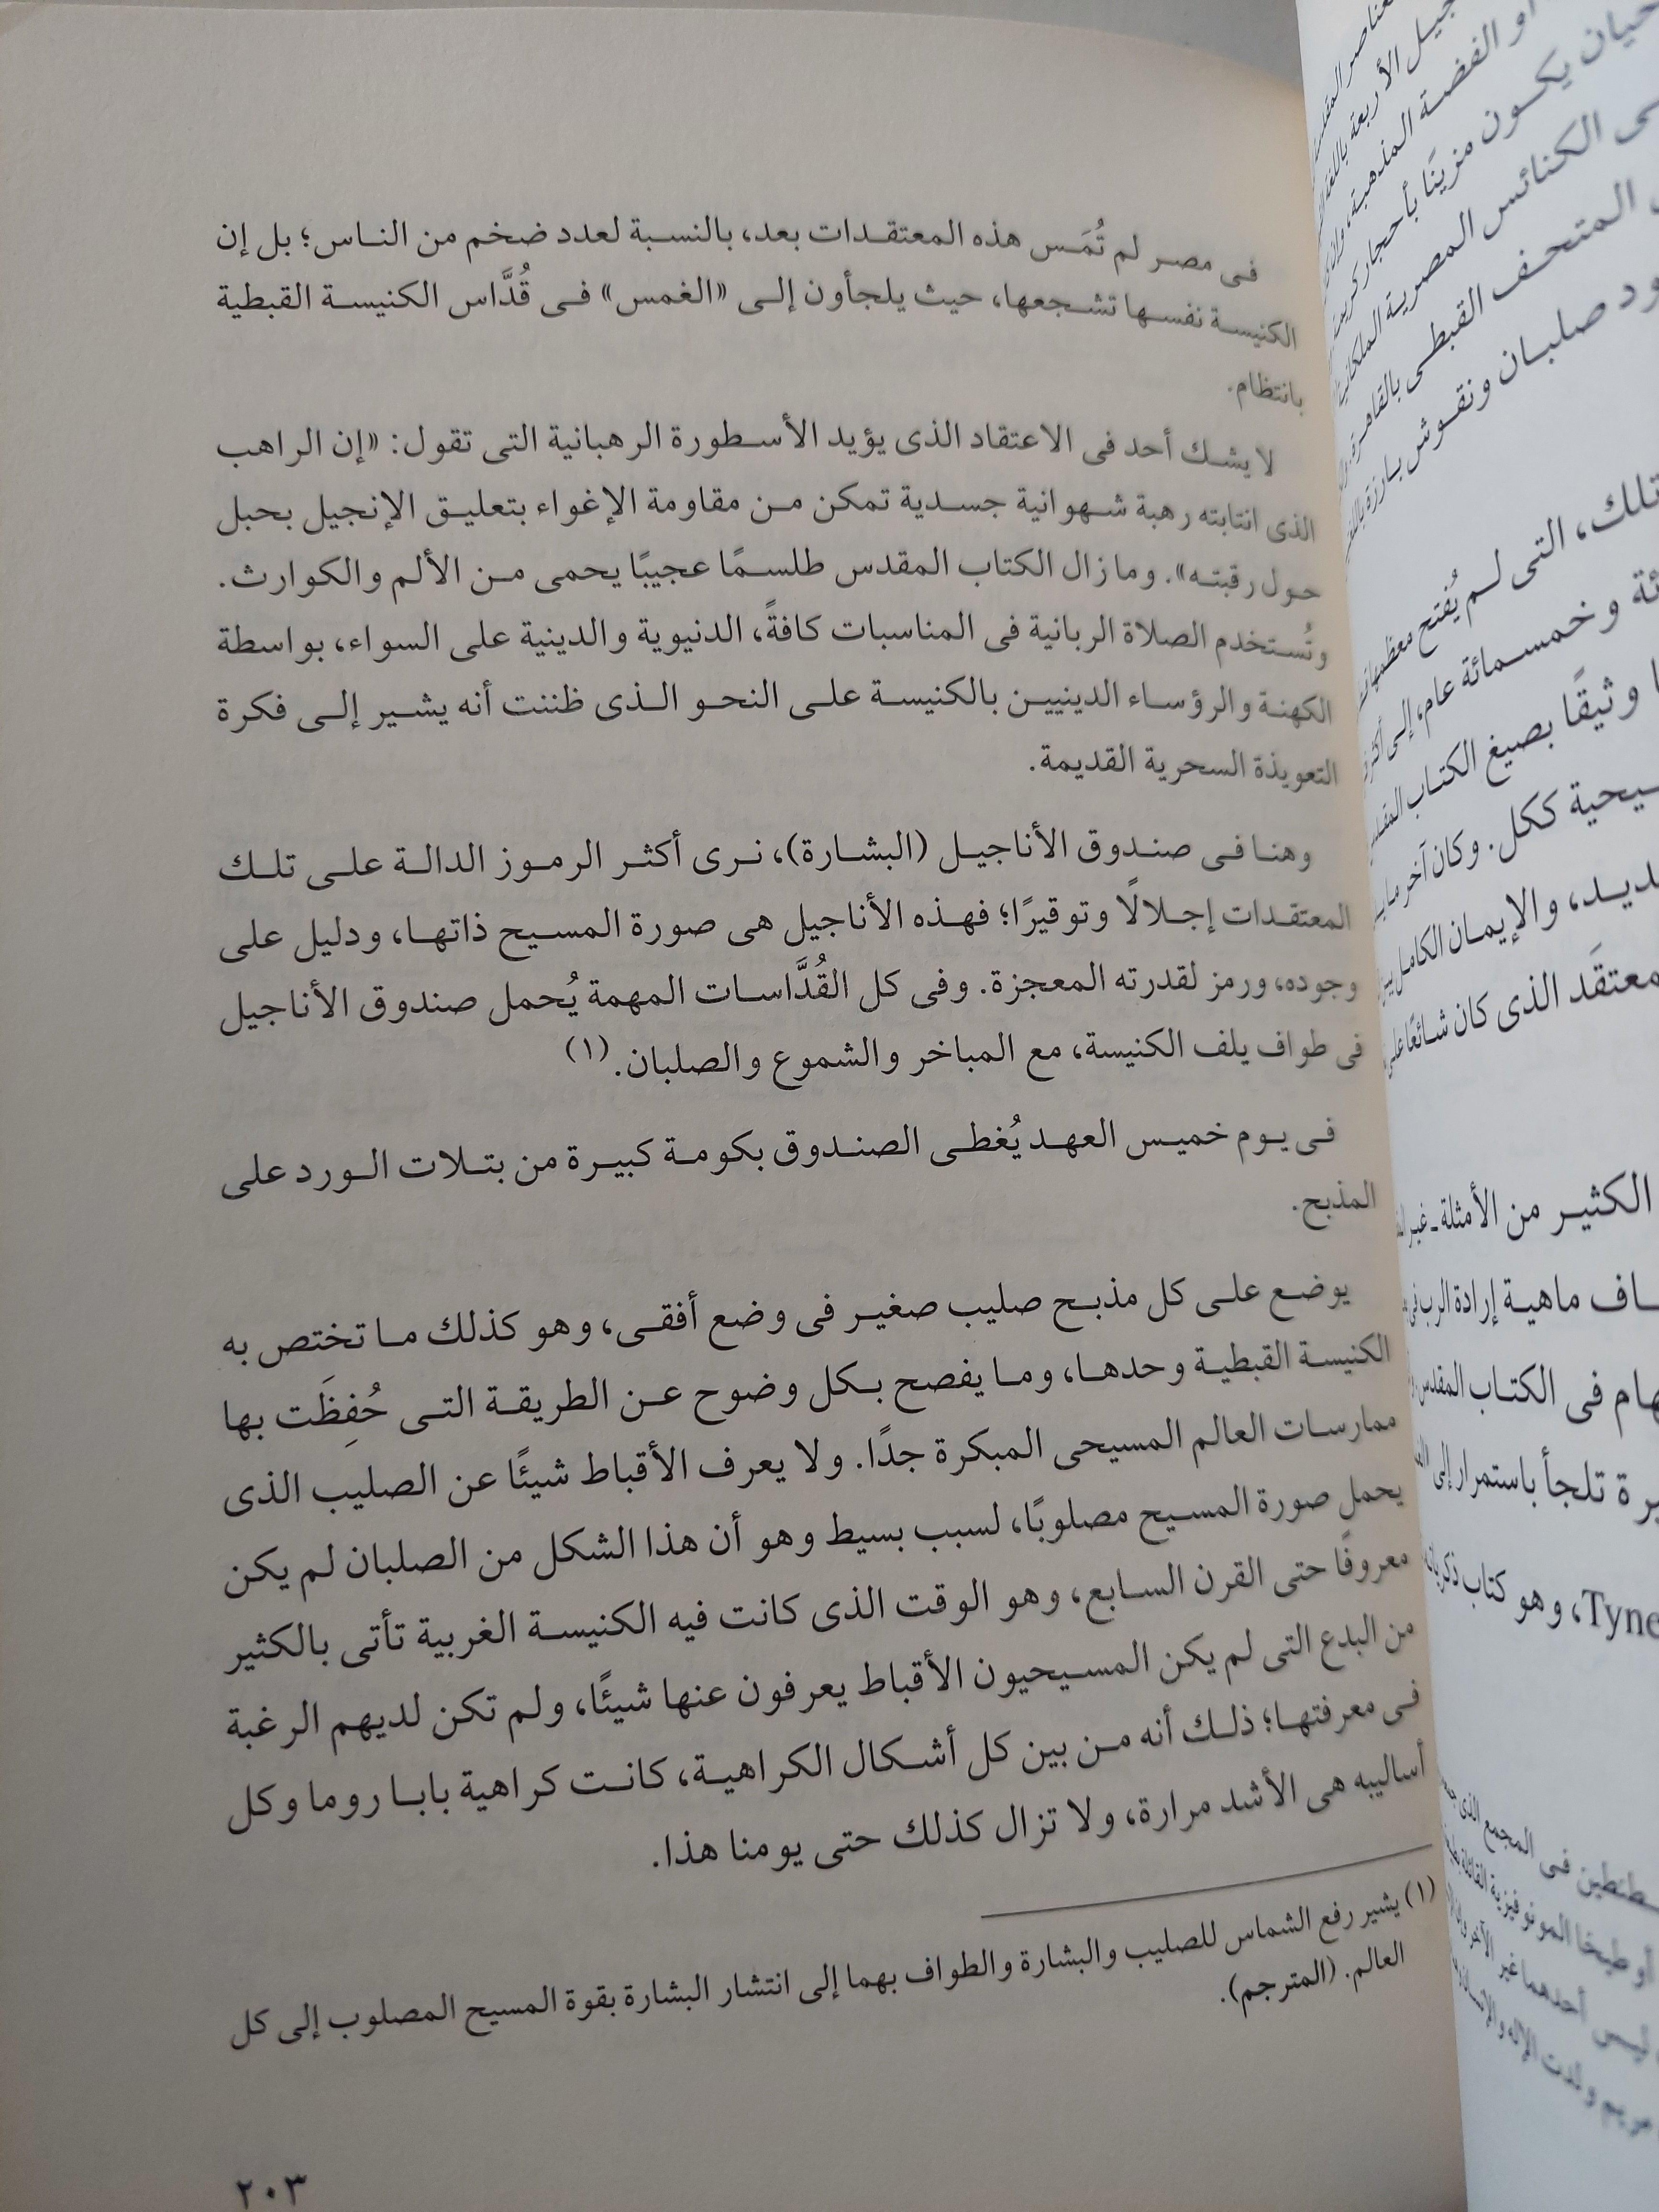 فى مصر لم تُمَس هذه المعتقدات بعد، بالنسبة لعدد ضخم من الناس؛ بل إن
الكنيسة نفسها تشجعها، حيث يلجأون إلى «الغمس» فى قُدَّاس الكنيسة القبطية
بانتظام.
لا يشك أحد فى الاعتقاد الذى يؤيد الأسطورة الرهبانية التى تقول: «إن الراهب
الذى انتابته رهبة شهوانية جسدية تمكن من مقاومة الإغواء بتعليق الإنجيل بحبل
حول رقبته». وما زال الكتاب المقدس طلسمًا عجيبًا يحمى من الألم والكوارث.
وتُستخدم الصلاة الربانية فى المناسبات كافةً، الدنيوية والدينية على السواء، بواسطة
الكهنة والرؤساء الدينيين بالكنيسة على النحو الذى ظننت أنه يشير إلى فكرة
التعويذة السحرية القديمة.
وهنا فى صندوق الأناجيل (البشارة)، نرى أكثر الرموز الدالة على تلك
المعتقدات إجلالًا وتوقيرًا؛ فهذه الأناجيل هى صورة المسيح ذاتها، ودليل على
وجوده، ورمز لقدرته المعجزة. وفى كل القُدَّاسات المهمة يُحمل صندوق الأناجيل
فى طواف يلف الكنيسة، مع المباخر والشموع والصلبان.(١)
فى يوم خميس العهد يُغطى الصندوق بكومة كبيرة من بتلات الورد على
المذبح.
يوضع على كل مذبح صليب صغير فى وضع أفقى، وهو كذلك ما تختص به
الكنيسة القبطية وحدها، وما يفصح بكل وضوح عن الطريقة التى حُفِظَت بها
ممارسات العالم المسيحى المبكرة جدًا. ولا يعرف الأقباط شيئًا عن الصليب الذى
يحمل صورة المسيح مصلوبًا، لسبب بسيط وهو أن هذا الشكل من الصلبان لم يكن
معروفًا حتى القرن السابع، وهو الوقت الذى كانت فيه الكنيسة الغربية تأتى بالكثير
من البدع التى لم يكن المسيحيون الأقباط يعرفون عنها شيئًا، ولم تكن لديهم الرغبة
فى معرفتها؛ ذلك أنه من بين كل أشكال الكراهية، كانت كراهية بابا روما وكل
أساليبه هى الأشد مرارة، ولا تزال كذلك حتى يومنا هذا.
(١) يشير رفع الشماس للصليب والبشارة والطواف بهما إلى انتشار البشارة بقوة المسيح المصلوب إلى كل
العالم. (المترجم).
٢٠٣
أو الفضة المذهبة،
يكون مزينًا بأحجار
الكنائس المصرية
المتحف القبطى بالقاهرة
صلبان ونقوش بارزة
تلك، التى لم يُفتح معظمها
وخمسمائة عام، إلى
وثيقًا بصيغ الكتاب
ككل. وكان آخر
والإيمان الكامل
الذى كان شائعًا
الكثير من الأمثلة - غير
ماهية إرادة الرب
فى الكتاب المقدس
تلجأ باستمرار إلى
وهو كتاب
فى المجمع الذى